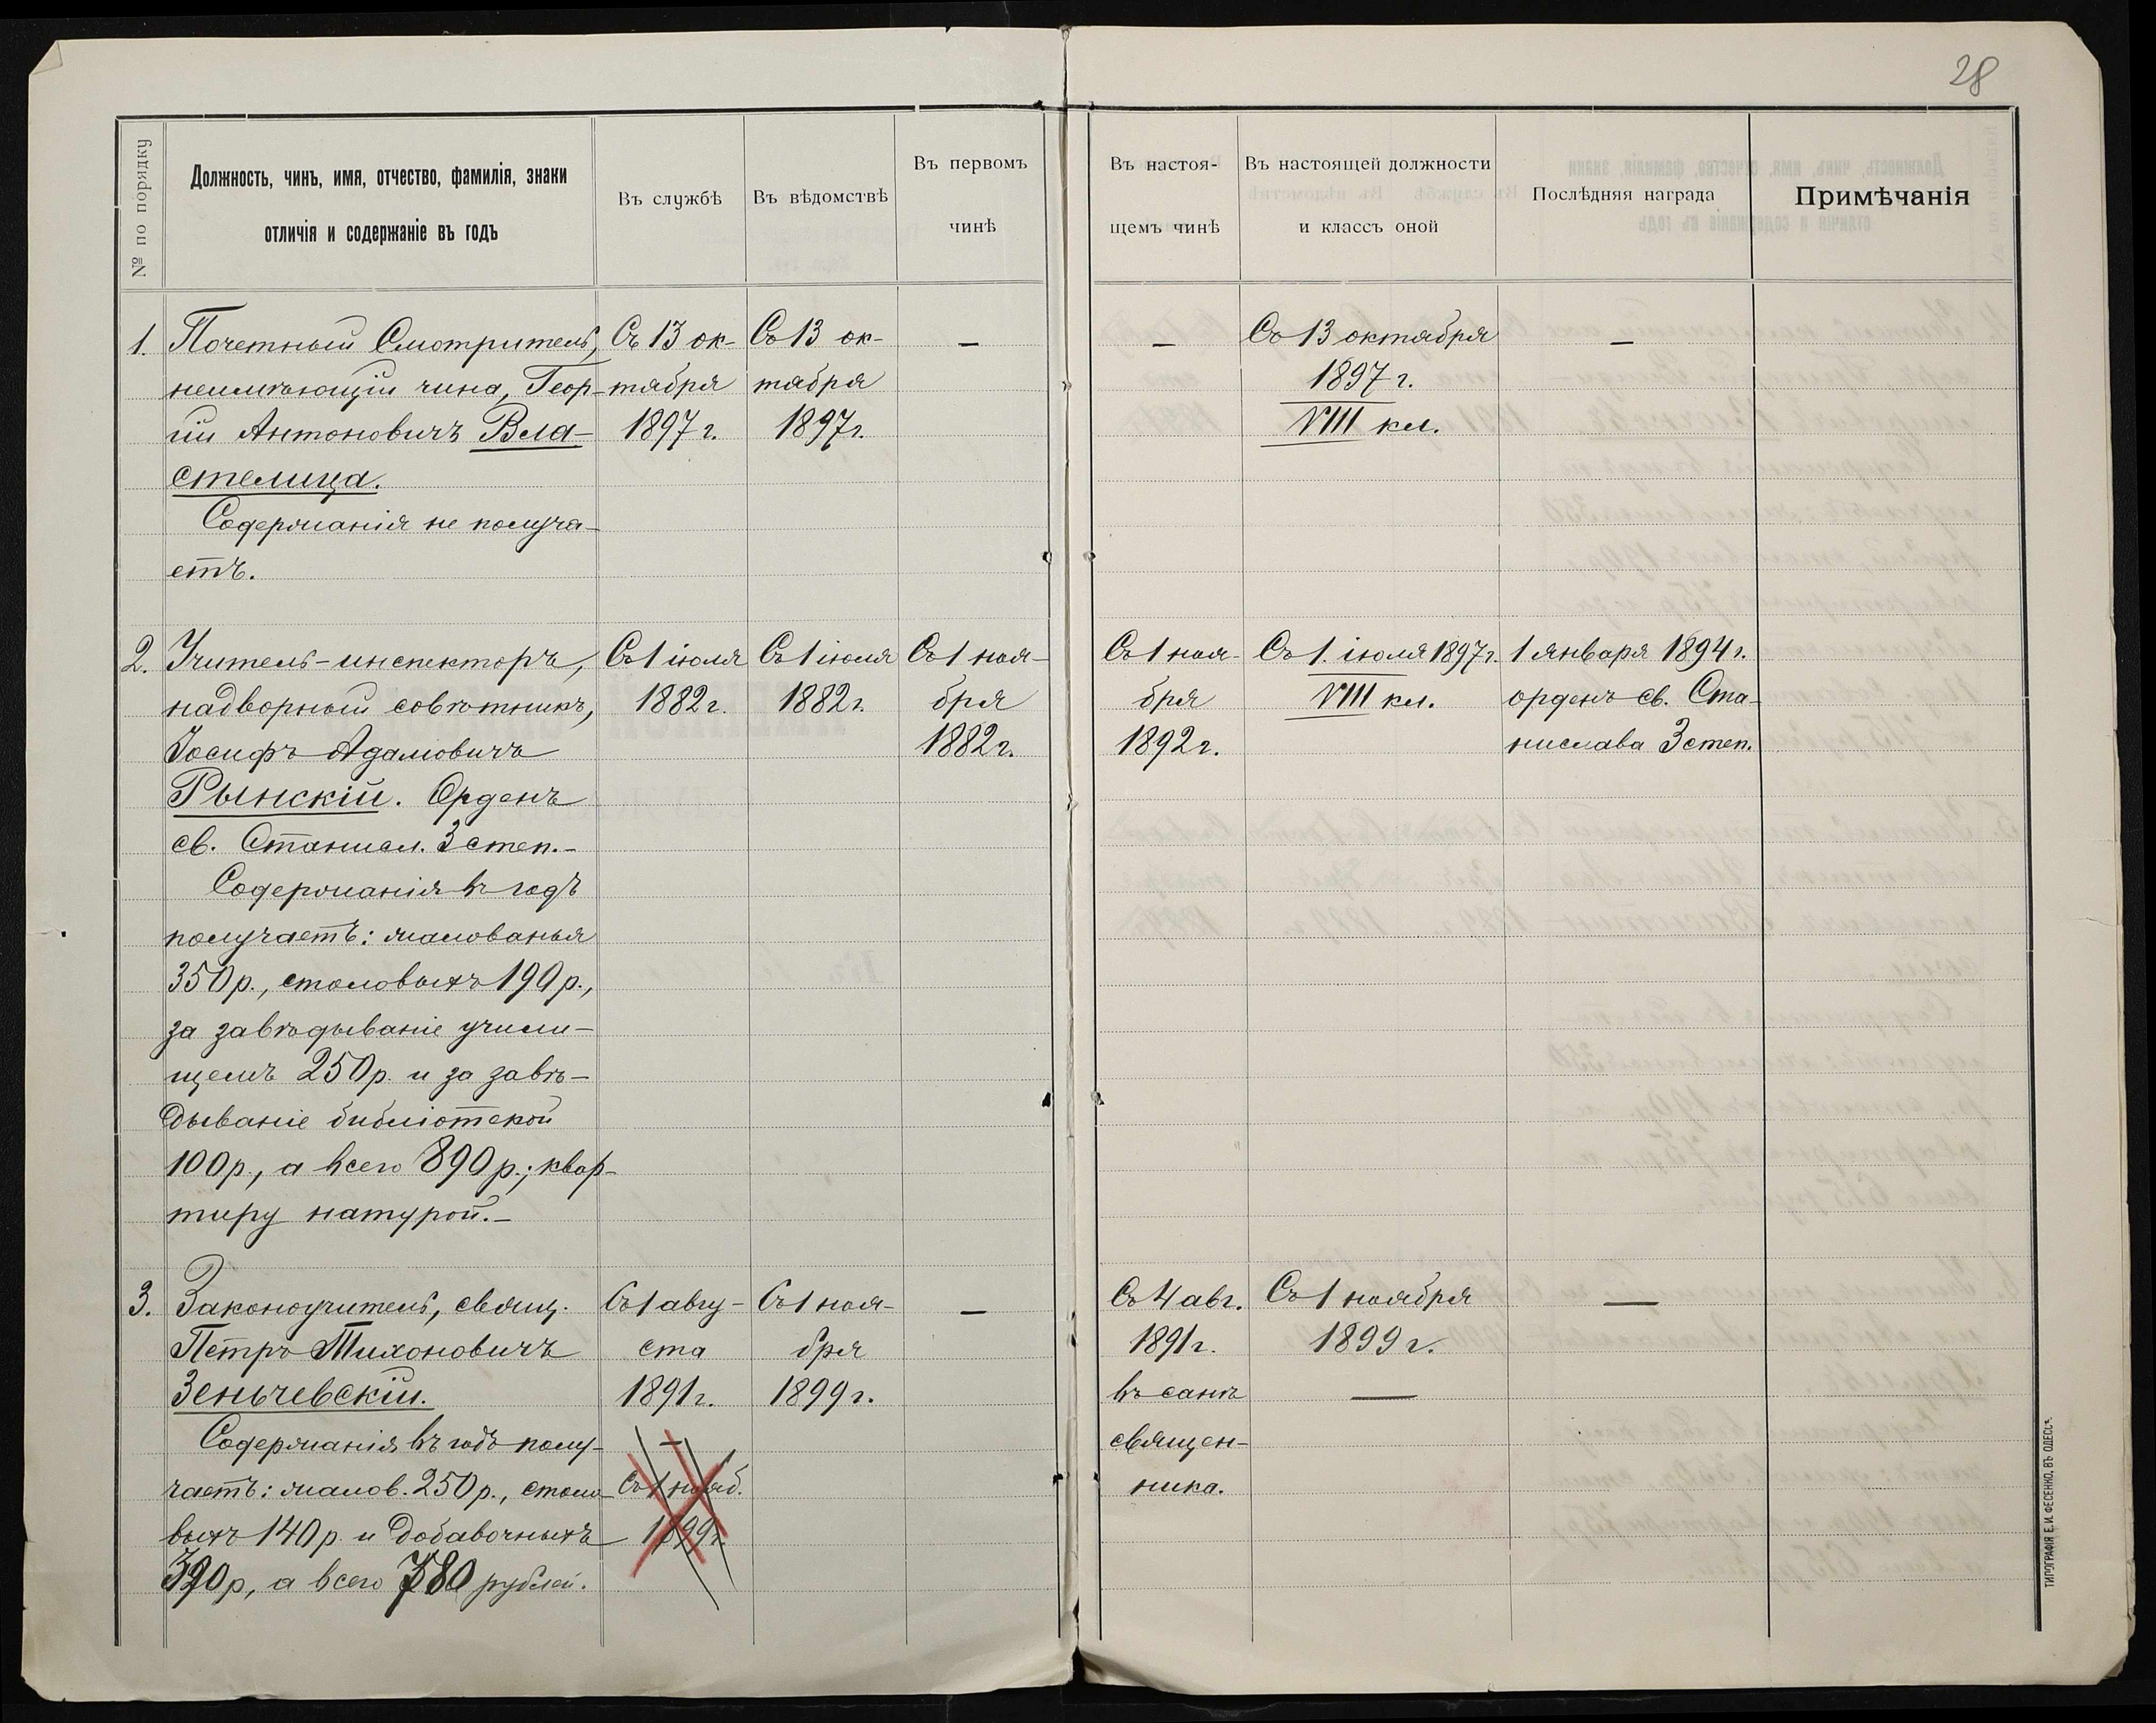 28
№ по порядку
Должность, чинъ, имя, отчество, фамилія, знаки
отличія и содержаніе въ годъ
Въ службѣ
Въ вѣдомствѣ
Въ первомъ
чинѣ
Въ настоя-
щемъ чинѣ
Въ настоящей должности
и классъ оной
Послѣдняя награда
Примѣчанія
1.
Почетный Смотритель,
неимѣющій чина, Геор-
гій Антоновичъ Вла-
стелица.
Содержанія не получа-
етъ.
Съ 13 ок-
тября
1897 г.
Съ 13 ок-
тября
1897 г.
—
—
Съ 13 октября
1897 г.
VIII кл.
—
2.
Учитель-инспекторъ,
надворный совѣтникъ,
Іосифъ Адамовичъ
Рынскій. Орденъ
св. Станисл. 3 степ.-
Содержанія въ годъ
получаетъ: жалованья
350 р., столовыхъ 190 р.,
за завѣдываніе учили-
щемъ 250 р. и за завѣ-
дываніе библіотекой
100 р., а всего 890 р.; квар-
тиру натурой.-
Съ 1 іюля
1882 г.
Съ 1 іюля
1882 г.
Съ 1 ноя-
бря
1882 г.
Съ 1 ноя-
бря
1892 г.
Съ 1. іюля 1897 г.
VIII кл.
1 Января 1894 г.
орденъ св. Ста-
нислава 3 степ.
3.
Законоучитель, свящ.
Петръ Тихоновичъ
Зеньчевскій.
Содержанія въ годъ полу-
чаетъ: жалов. 250 р., столо-
выхъ 140 р. и добавочныхъ
390 р., а всего 780 рублей.
Съ 1 авгу-
ста
1891 г.
—
Съ 1 нояб.
1899 г.
Съ 1 ноя-
бря
1899 г.
—
Съ 4 авг.
1891 г.
въ санѣ
священ-
ника.
Съ 1 ноября
1899 г.
—
—
ТИПОГРАФІЯ Е. И. ФЕСЕНКО, ВЪ ОДЕССѢ